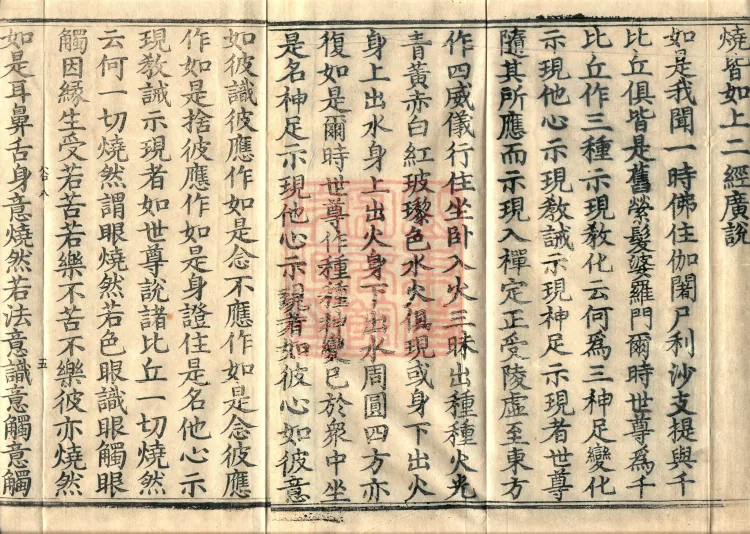 燒皆如上二經廣說
如是我聞一時佛住伽闍尸利沙支提與千
比丘俱皆是舊縈髮婆羅門爾時世尊為千
比丘作三種示現教化云何為三神足變化
示現他心示現教誡示現神足示現者世尊
隨其所應而示現入禪定正受陵虛至東方
作四威儀行住坐臥入火三昧出種種火光
青黃赤白紅玻瓈色水火俱現或身下出火
身上出水身上出火身下出水周圓四方亦
復如是爾時世尊作種種神變已於眾中坐
是名神足示現他心示現者如彼心如彼意
如彼識彼應作如是念不應作如是念彼應
作如是捨彼應作如是身證住是名他心示
現教誡示現者如世尊說諸比丘一切燒然
云何一切燒然謂眼燒然若色眼識眼觸眼
觸因緣生受若苦若樂不苦不樂彼亦燒然
八 五
如是耳鼻舌身意燒然若法意識意觸意觸